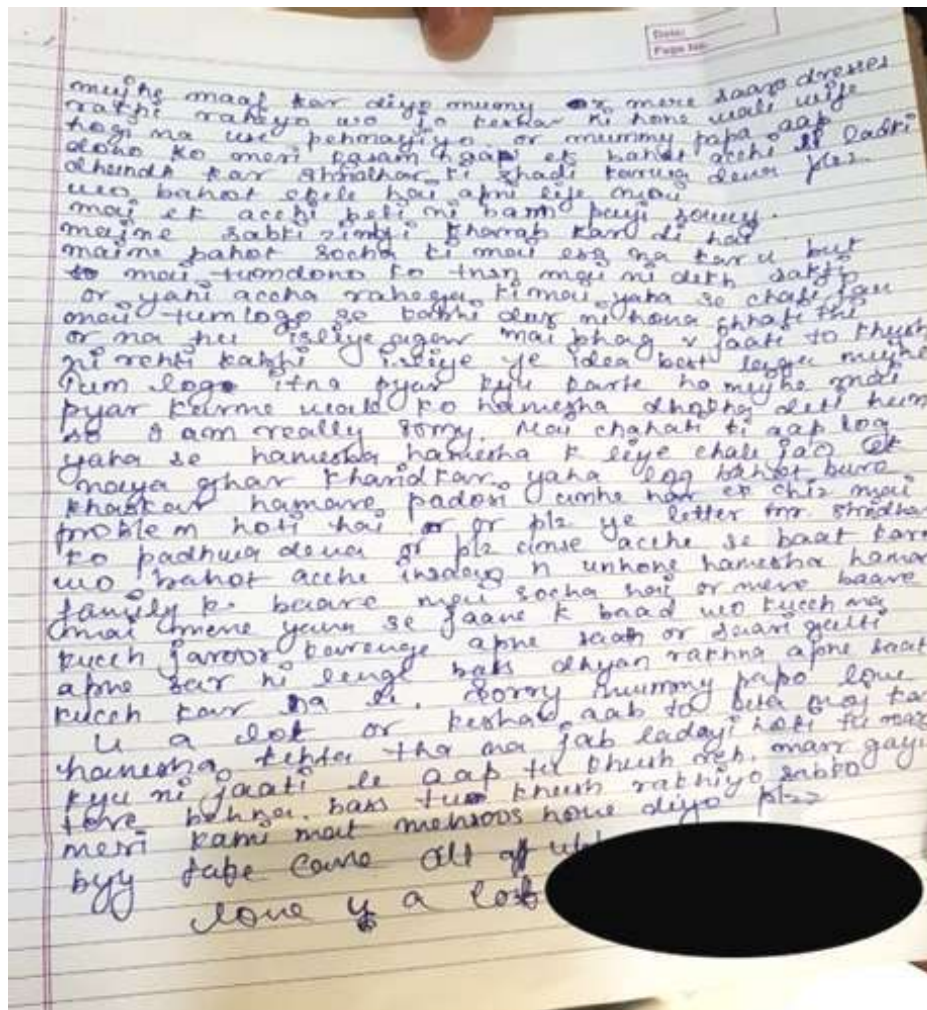 Date:
Page No.
mujhe maaf kar diyo mumy or mere saare dresses
rakhi rahiyo wo jo keshav ki hone wali wife
hogi na use pehnayiyo. or mummy papa aap
dono ko meri kasam hai ek bahot acchi ladki
dhundh kar Shridhar ki shadi karwa dena plzz.
wo bahot akele hai apni life mai
mai ek acchi beti ni bann payi sorry.
maine sabki zindgi kharrab kar di hai
maine bahot socha ki mai esa na karu but
mai tumdono ko insn mai ni dekh sakti
or yahi accha rahega ki mai yaha se chali jau
mai tumlogo se kabhi dur ni hona chhati thi
or na hu isliye agar mai bhag v jaati to khush
ni rehti kabhi isliye ye idea best laga mujhe
tum logo itna pyar kyu karte ho mujhe mai
pyar karne walo ko hamesha dhokha deti hum
so I am really sorry. Mai chahati ki aap log
yaha se hamesha hamesha k liye chale jao ek
naya ghar kharidkar. yaha log bahot bure
khaskar hamare padosi unhe har ek chiz mai
problem hoti hai or plz ye letter mr. Shridhar
ko padhwa dena or plz unse acche se baat kare
wo bahot acche insaan n unhone hamesha hamar
family k baare mai socha hai or mere baare
mai mene yaha se jaane k baad wo kucch na
kucch jaroor karenge apne saath or saari galti
apne sar ni lenge bass dhyan rakhna apne saat
kucch kar na le. Sorry mummy papa love
u a lot or keshav aab to beta moj kar
hamesha kehta tha na jab ladayi hoti tu marr
kyu ni jaati le aap tu khush reh. marr gayi
tere behna. bass tu khush rakhiyo sabko
meri kami mat mehsoos hone diyo plzz
byy take care all of
love y a lot